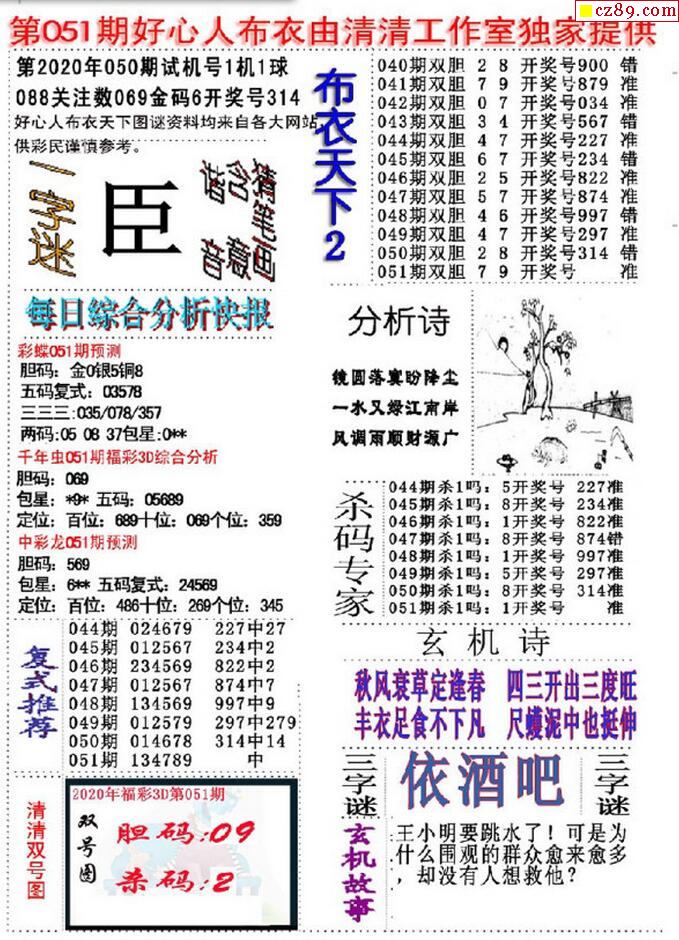 cz89.com
第051期好心人布衣由清清工作室独家提供
第2020年050期试机号1机1球
088关注数069金码6开奖号314
好心人布衣天下图谜资料均来自各大网站,
供彩民谨慎参考。
一字迷
臣
猜笔画
含意
谐音
布衣天下2
040期双胆 2 8 开奖号900 错
041期双胆 7 9 开奖号879 准
042期双胆 0 7 开奖号034 准
043期双胆 3 4 开奖号567 错
044期双胆 4 7 开奖号227 准
045期双胆 6 7 开奖号234 错
046期双胆 2 5 开奖号822 准
047期双胆 5 7 开奖号874 准
048期双胆 4 6 开奖号997 错
049期双胆 4 7 开奖号297 准
050期双胆 2 8 开奖号314 错
051期双胆 7 9 开奖号 准
每日综合分析快报
彩蝶051期预测
胆码: 金0银5铜8
五码复式: 03578
三三三:035/078/357
两码:05 08 37包星:0**
千年虫051期福彩3D综合分析
胆码: 069
包星: *9* 五码: 05689
定位: 百位: 689十位: 069个位: 359
中彩龙051期预测
胆码: 569
包星: 6** 五码复式: 24569
定位: 百位: 486十位: 269个位: 345
分析诗
镜圆落寞盼降尘
一水又绿江南岸
风调雨顺财源广
杀码专家
044期杀1吗: 5开奖号 227准
045期杀1吗: 8开奖号 234准
046期杀1吗: 1开奖号 822准
047期杀1吗: 8开奖号 874错
048期杀1吗: 1开奖号 997准
049期杀1吗: 5开奖号 297准
050期杀1吗: 8开奖号 314准
051期杀1吗: 1开奖号 准
复式推荐
044期 024679 227中27
045期 012567 234中2
046期 234569 822中2
047期 012567 874中7
048期 134569 997中9
049期 012579 297中279
050期 014678 314中14
051期 134789 中
玄机诗
秋风衰草定逢春 四三开出三度旺
丰衣足食不下凡 尺蠖泥中也挺伸
三字谜
依酒吧
三字谜
清清双号图
2020年福彩3D第051期
双号图
胆码:09
杀码:2
玄机故事
王小明要跳水了! 可是为
什么围观的群众愈来愈多
, 却没有人想救他?